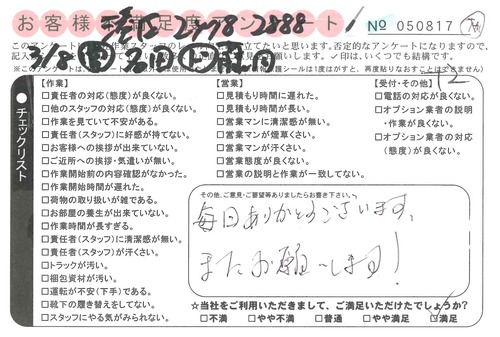 お客様満足度アンケート
2778 2888
№ 050817
3/8
12
チェックリスト
【作業】
□責任者の対応(態度)が良くない。
□他のスタッフの対応(態度)が良くない。
□作業を見ていて不安がある。
□責任者(スタッフ)に好感が持てない。
□お客様への挨拶が出来ていない。
□ご近所への挨拶・気遣いが無い。
□作業開始前の内容確認がなかった。
□作業開始時間が遅れた。
□荷物の取り扱いが雑である。
□お部屋の養生が出来ていない。
□作業時間が長すぎる。
□責任者(スタッフ)に清潔感が無い。
□責任者(スタッフ)が汗くさい。
□トラックが汚い。
□梱包資材が汚い。
□運転が不安(下手)である。
□靴下の履き替えをしてない。
□スタッフにやる気がみられない。
【営業】
□見積もり時間に遅れた。
□見積もり時間が長い。
□営業マンに清潔感が無い。
□営業マンが煙草くさい。
□営業マンが汗くさい。
□営業態度が良くない。
□営業の説明と作業が一致してない。
【受付・その他】
□電話の対応が良くない。
□オプション業者の説明
・作業が良くない。
□オプション業者の対応
(態度)が良くない。
その他、ご意見・ご要望等ありましたらお書き下さい。
毎日ありがとうございます。
またお願いします!
☆当社をご利用いただきまして、ご満足いただけたでしょうか?
□不満 □やや不満 □普通 □やや満足 ☑満足